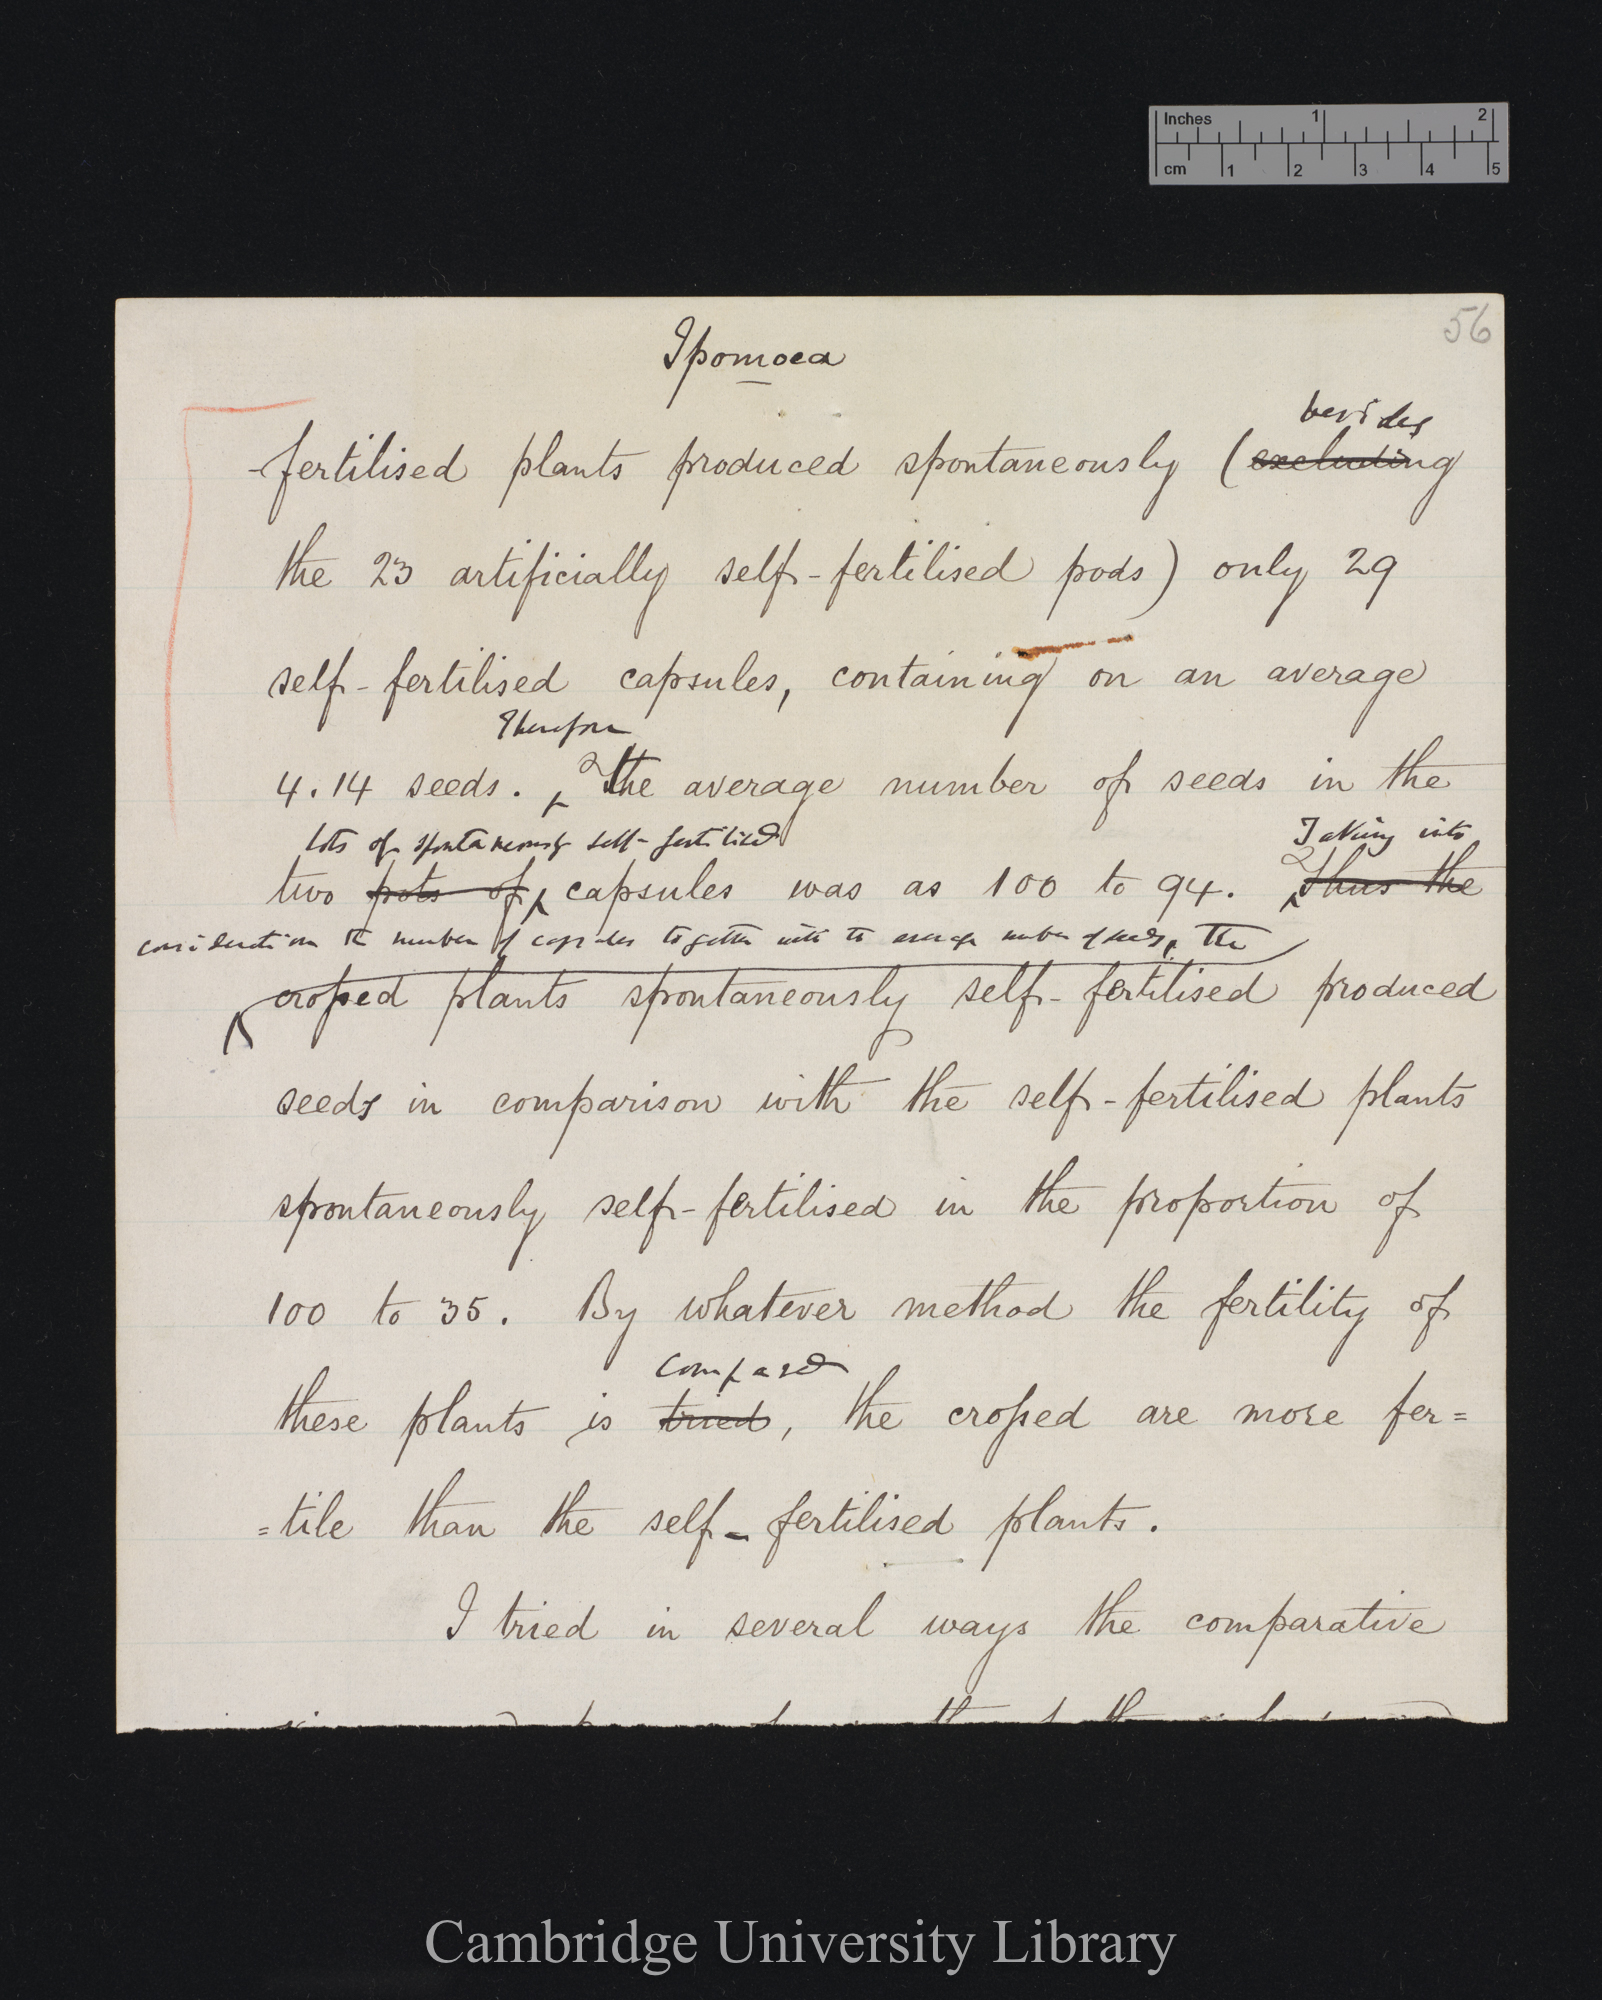 Inches 1 2
cm 1 2 3 4 5
56
Ipomoea
besides
-fertilised plants produced spontaneously (excluding
the 23 artificially self-fertilised pods) only 29
self-fertilised capsules, containing on an average
Therefore
4.14 seeds. The average number of seeds in the
lots of spontaneously self-fertilised Taking into
two pots of capsules was as 100 to 94. Thus the
consideration the number of capsules together with the average number of seeds, the
crossed plants spontaneously self-fertilised produced
seeds in comparison with the self-fertilised plants
spontaneously self-fertilised in the proportion of
100 to 35. By whatever method the fertility of
compared
these plants is tried, the crossed are more fer=
=tile than the self-fertilised plants.
I tried in several ways the comparative
Cambridge University Library